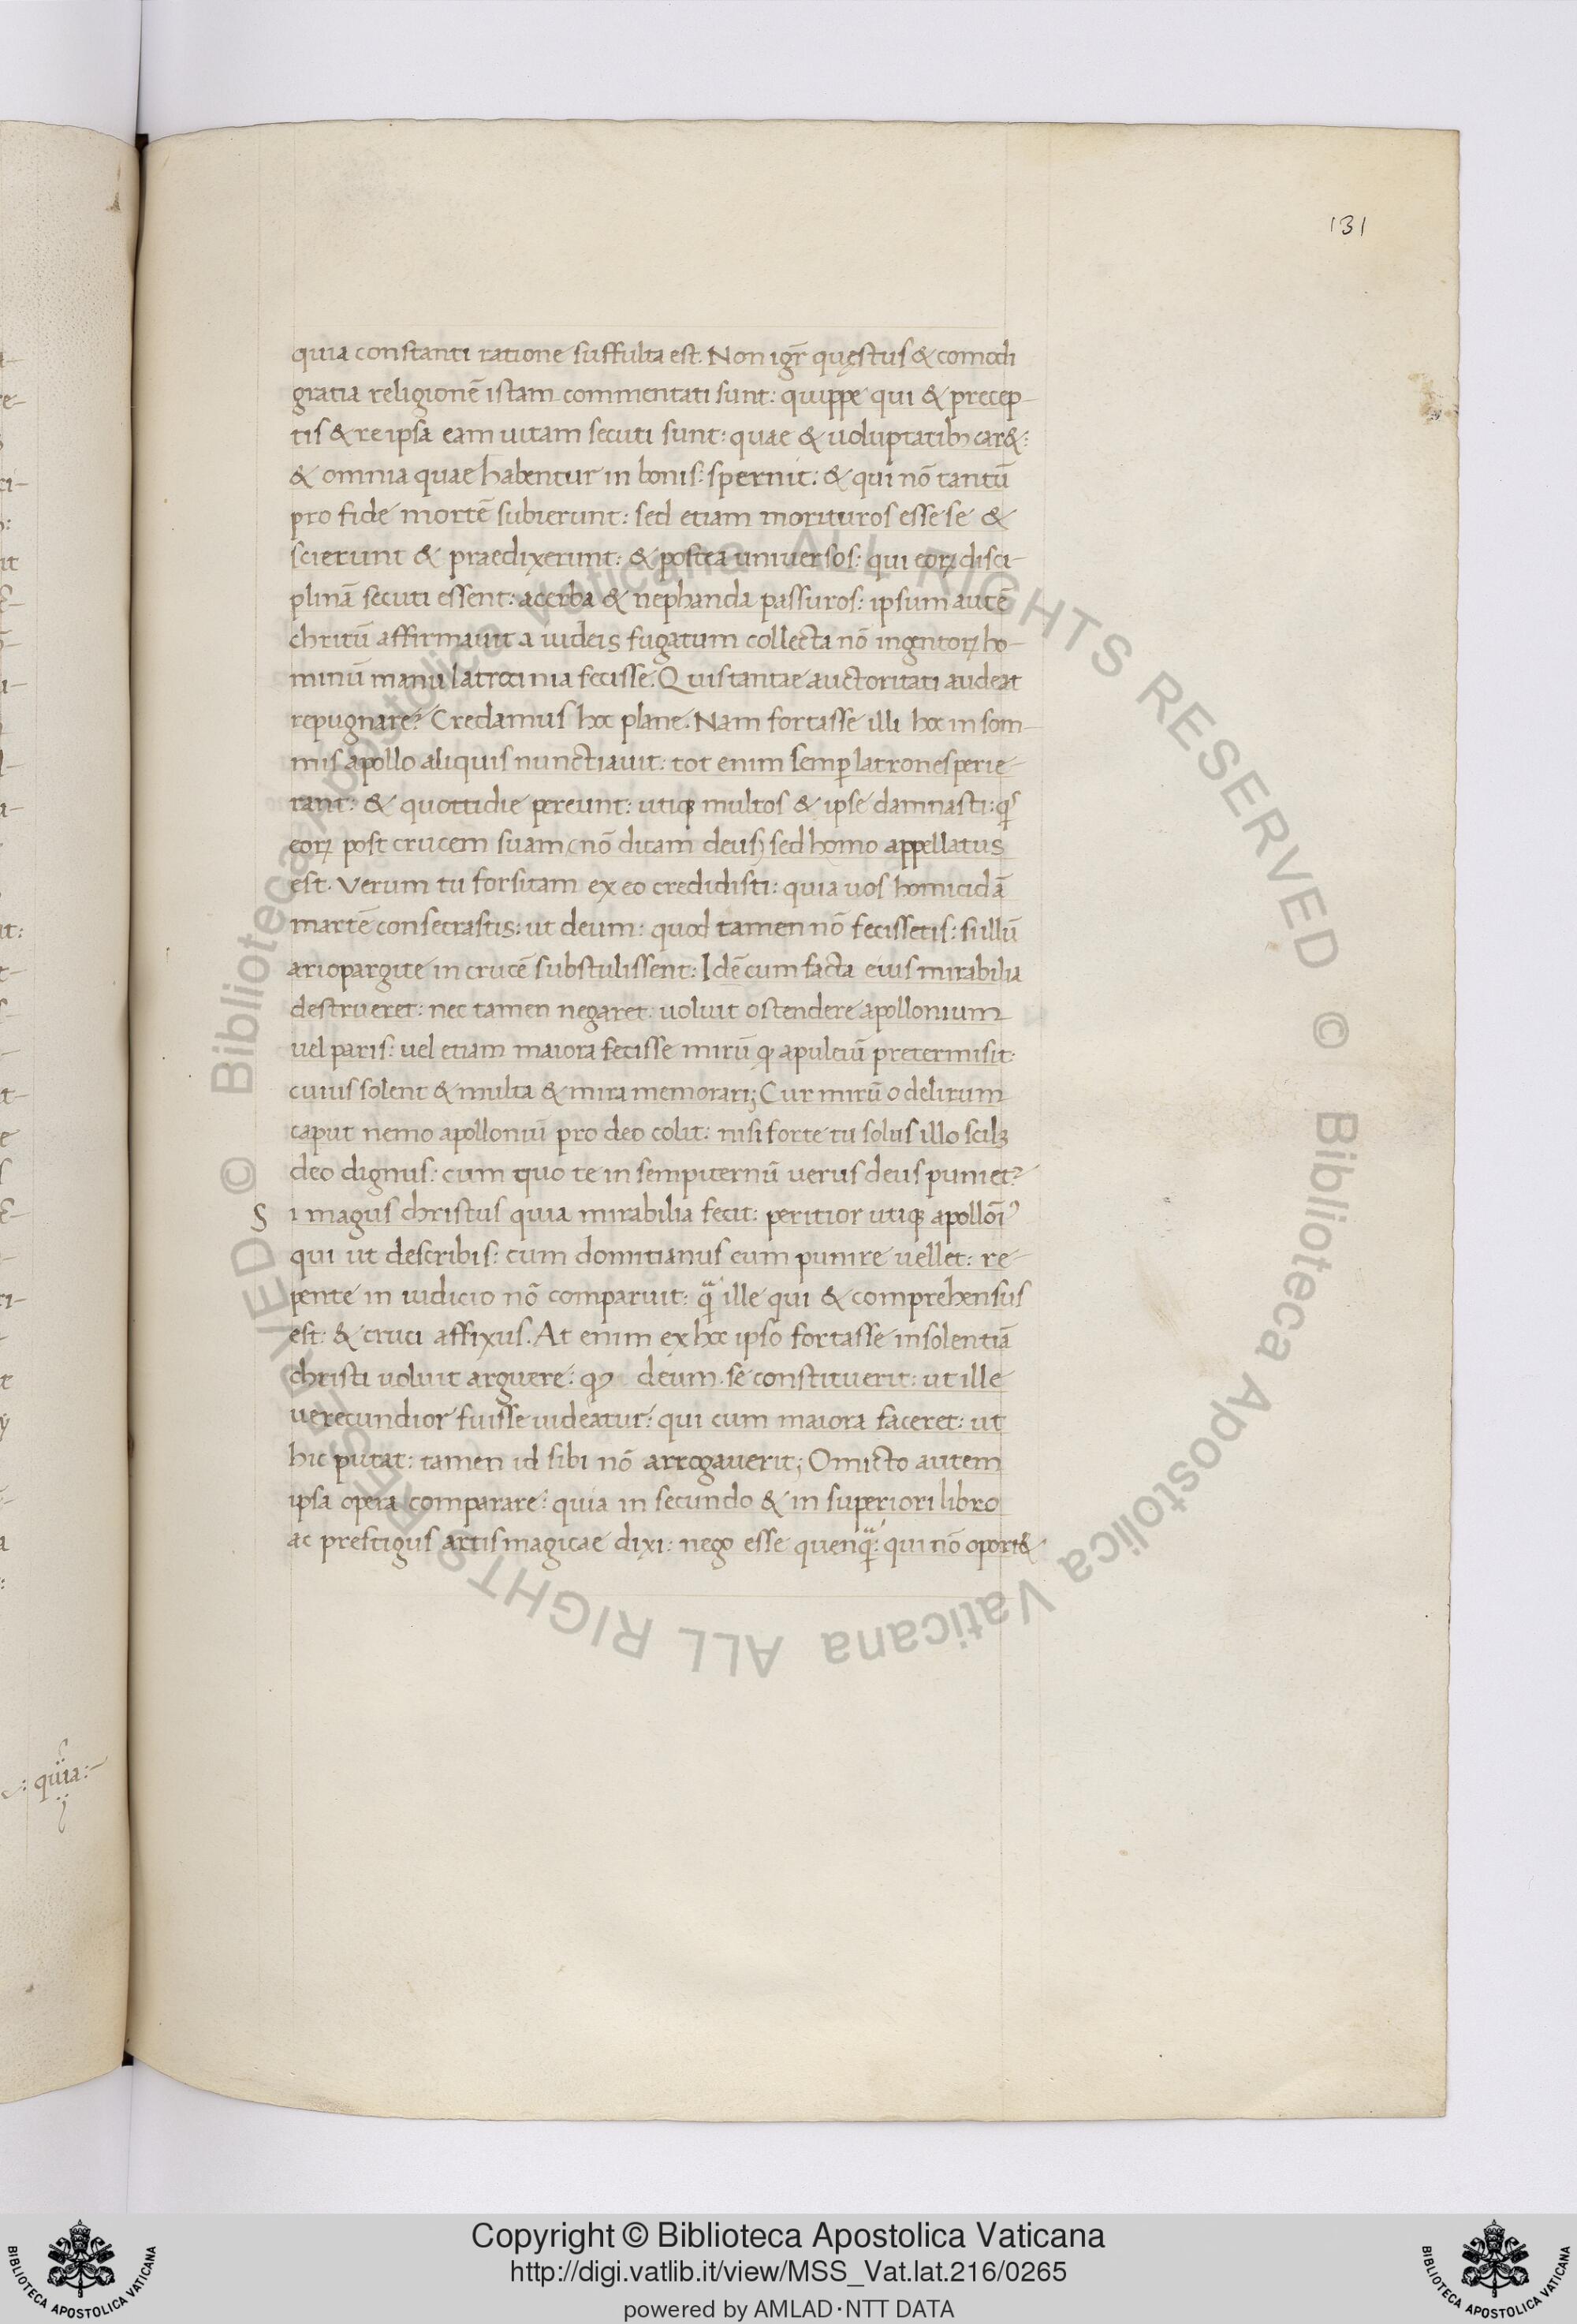 131
quia constanti ratione suffulta est. Non igr̄ quęstus & comodi
gratia religionē istam commentati sunt: quippe qui & precep-
tis & re ipsa eam uitam secuti sunt: quae & uoluptatibꝫ car&:
& omnia quae habentur in bonis: spernit: & qui nō tantū
pro fide mortē subierunt: sed etiam morituros esse se &
scierunt & praedixerunt: & postea universos: qui eoꝝ disci-
plinā secuti essent: acerba & nephanda passuros: ipsum autē
chritū affirmauit a iudeis fugatum collecta nō ingentoꝝ ho-
minū manu latrocinia fecisse. Quis tantae auctoritati audeat
repugnare? Credamus hoc plane. Nam fortasse illi hoc in som-
niis apollo aliquis nunctiauit: tot enim semꝑ latrones perie-
rant: & quottidie pereunt: utiqꝫ multos & ipse damnasti: qͥs
eoꝝ post crucem suam (nō dicam deus) sed homo appellatus
est. Verum tu forsitam ex eo credidisti: quia uos homicidā
martē consecrastis: ut deum: quod tamen nō fecissetis: si illū
ariopargite in crucē substulissent: Idē cum facta eius mirabilia
destrueret: nec tamen negaret: uoluit ostendere apollonium
uel paris: uel etiam maiora fecisse mirū ꝙ apuleiū pretermisit:
cuius solent & multa & mira memorari; Cur mirū o delirum
caput nemo apolloniū pro deo colit: nisi forte tu solus illo scilꝫ
deo dignus: cum quo te in sempiternū uerus deus puniet?
S i magus christus quia mirabilia fecit: peritior utiqꝫ apollōiꝰ
qui ut describis: cum domitianus eum punire uellet: re-
pente in iudicio nō comparuit: qͣ ille qui & comprehensus
est: & cruci affixus. At enim ex hoc ipso fortasse insolentiā
christi uoluit arguere: ꝙ deum se constituerit: ut ille
uerecundior fuisse uideatur: qui cum maiora faceret: ut
hic putat: tamen id sibi nō arrogauerit; Omicto autem
ipsa opera comparare: quia in secundo & in superiori libro
ac prestigiis artis magicae dixi: nego esse quenqͣ: qui nō oport&
: quia:
© Biblioteca Apostolica Vaticana ALL RIGHTS RESERVED © Biblioteca Apostolica Vaticana ALL RIGHTS RESERVED
Copyright © Biblioteca Apostolica Vaticana
http://digi.vatlib.it/view/MSS_Vat.lat.216/0265
powered by AMLAD·NTT DATA
BIBLIOTECA APOSTOLICA VATICANA
BIBLIOTECA APOSTOLICA VATICANA